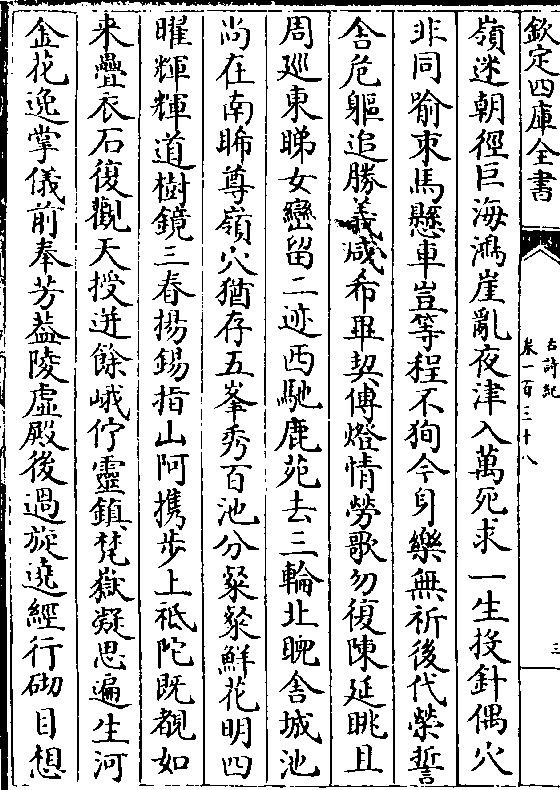 欽定四庫全書
古詩紀
卷一百三十八
三
嶺迷朝徑巨海鴻崖亂夜津入萬死求一生投針偶穴
非同喻束馬懸車豈等程不徇今身樂無祈後代榮誓
舍危軀追勝義咸希畢契傳燈情勞歌勿復陳延眺且
周廵東睇女巒留二迹西馳鹿苑去三輪北睨舍城池
尚在南睎尊嶺穴猶存五峯秀百池分粲粲鮮花明四
曜輝輝道樹鏡三春揚錫指山阿攜步上祗陀既覩如
来疊衣石復觀天授迸餘峨佇靈鎮梵嶽凝思遍生河
金花逸掌儀前奉芳葢陵虛殿後過旋遶經行砌目想